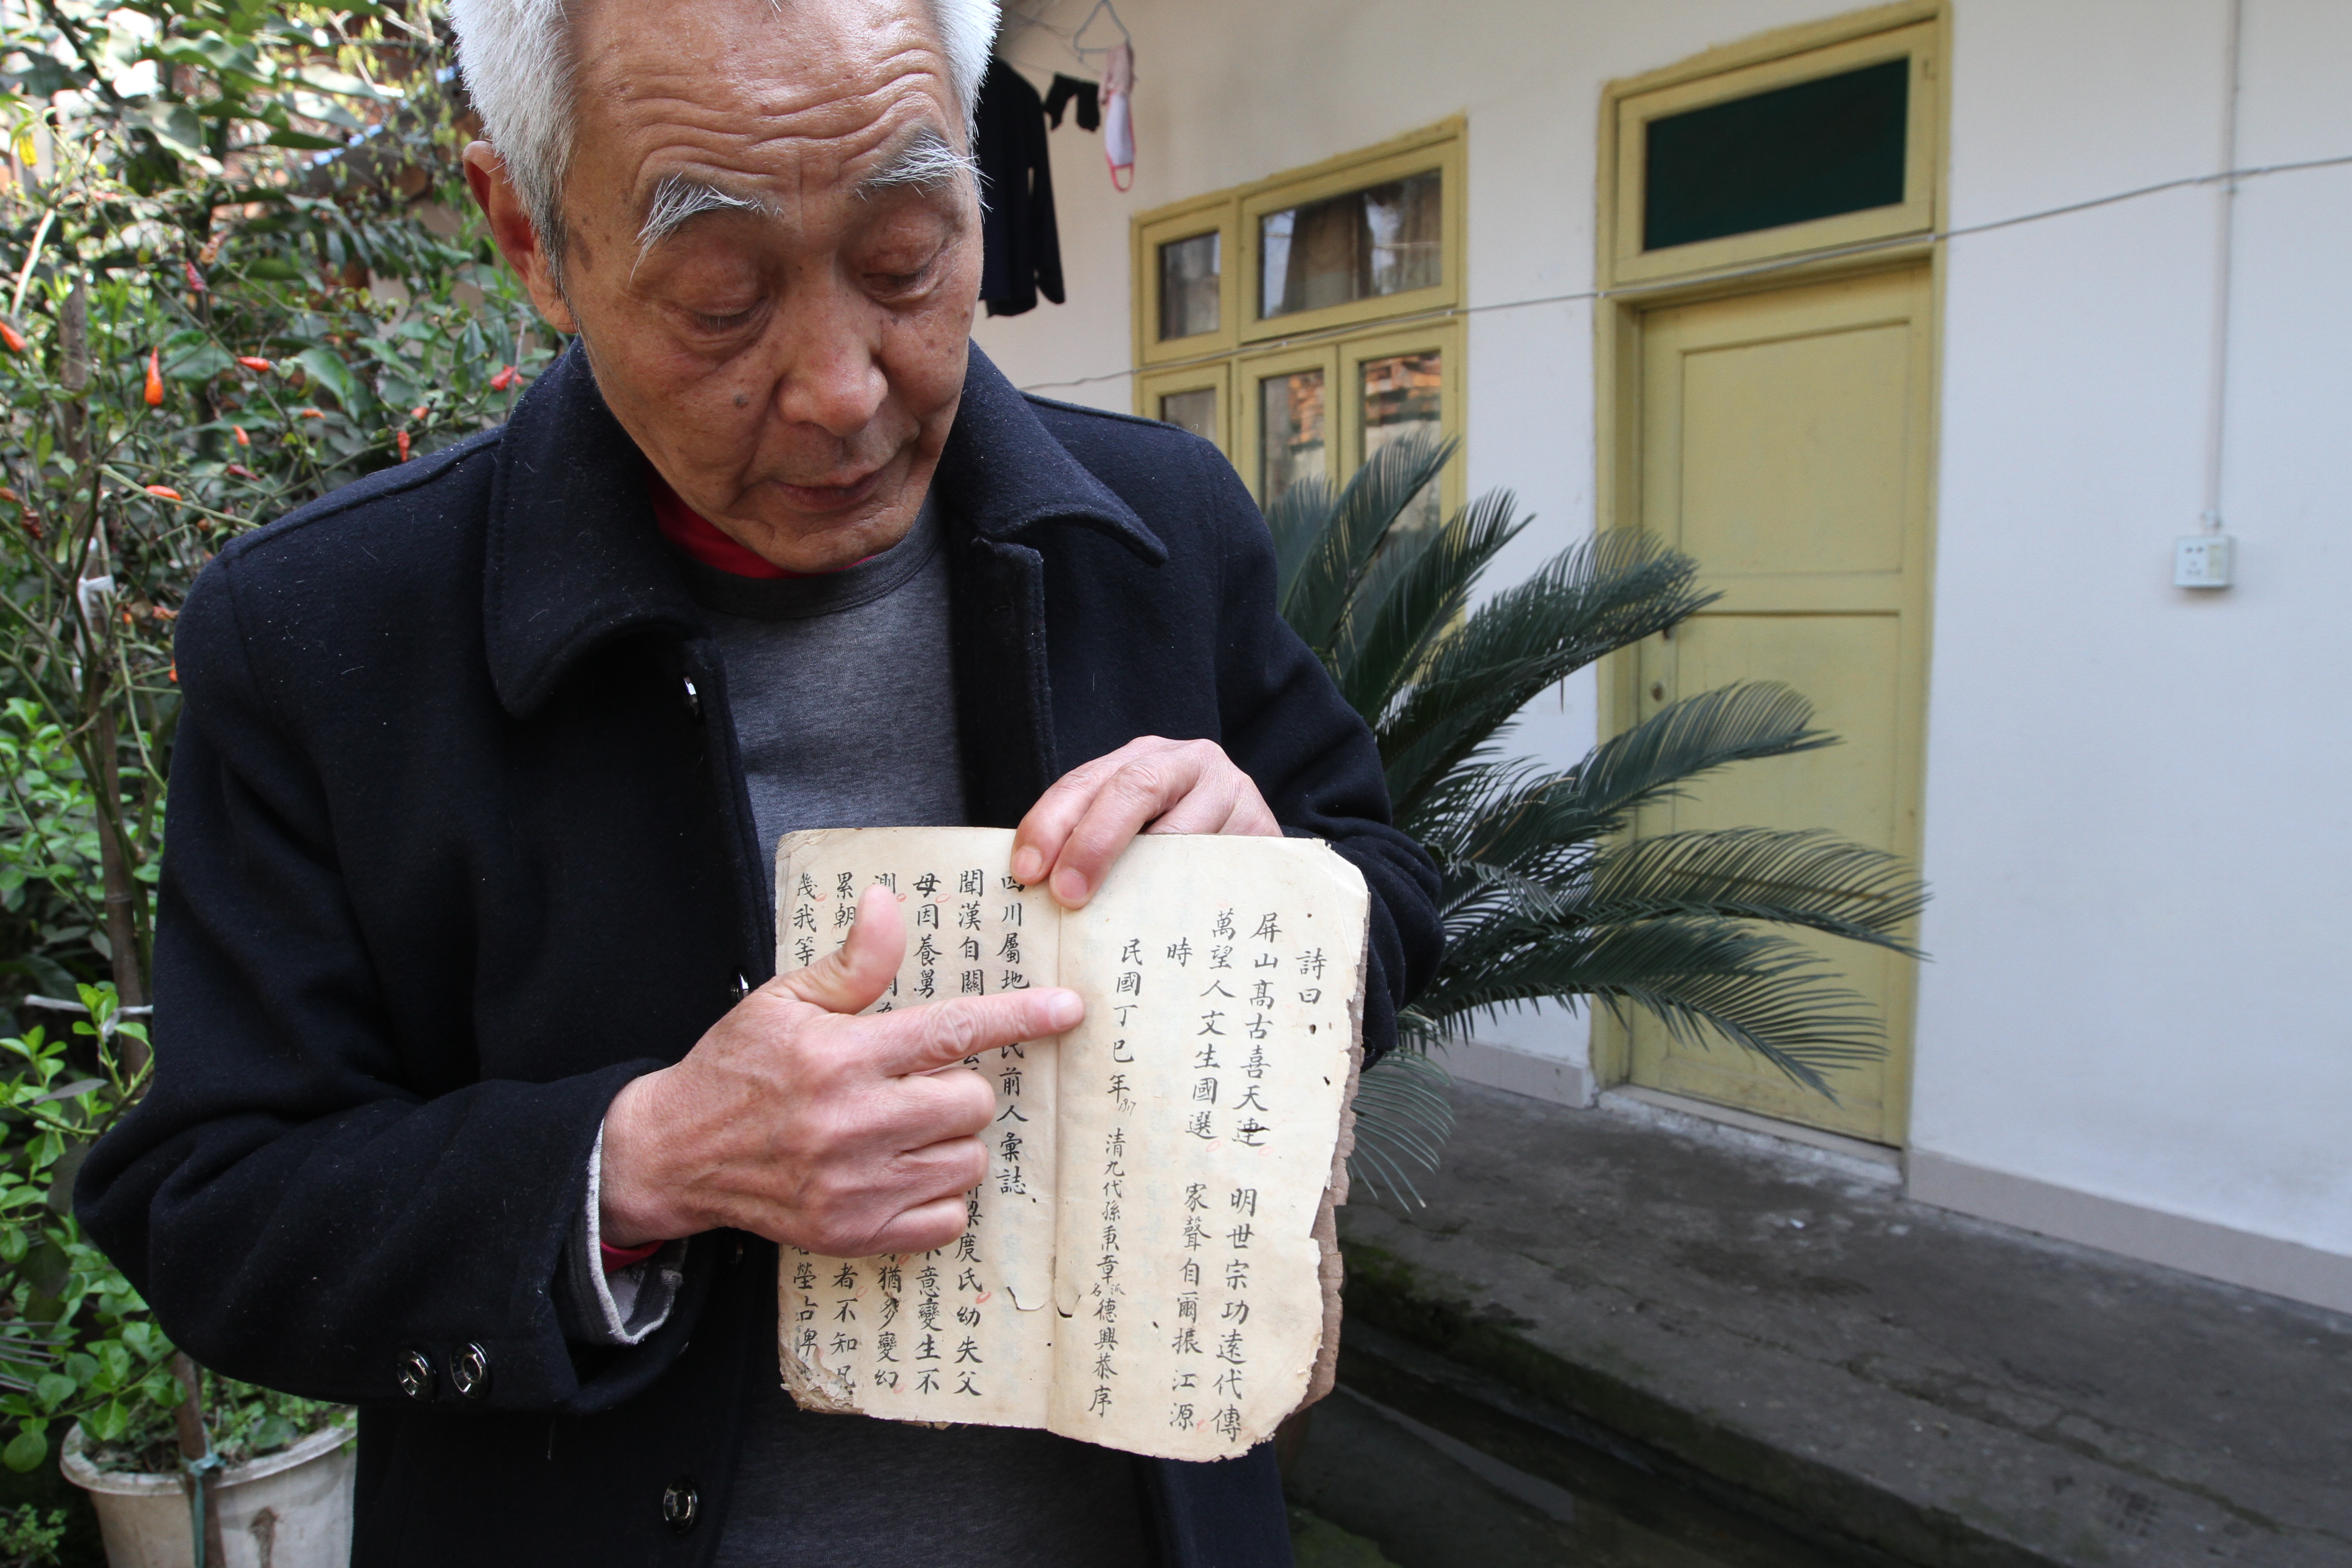 詩曰
屏山高古喜天連 明世宗功遠代傳
萬望人文生國選 家聲自爾振江源
時
民國丁巳年 清九代孫秉章派名德興恭序
四川屬地 民前人彙誌
聞漢自關 梁度氏幼失父
母因養舅 意變生不
測 猶多變幻
累朝 者不知凡
幾我等 塋占碑